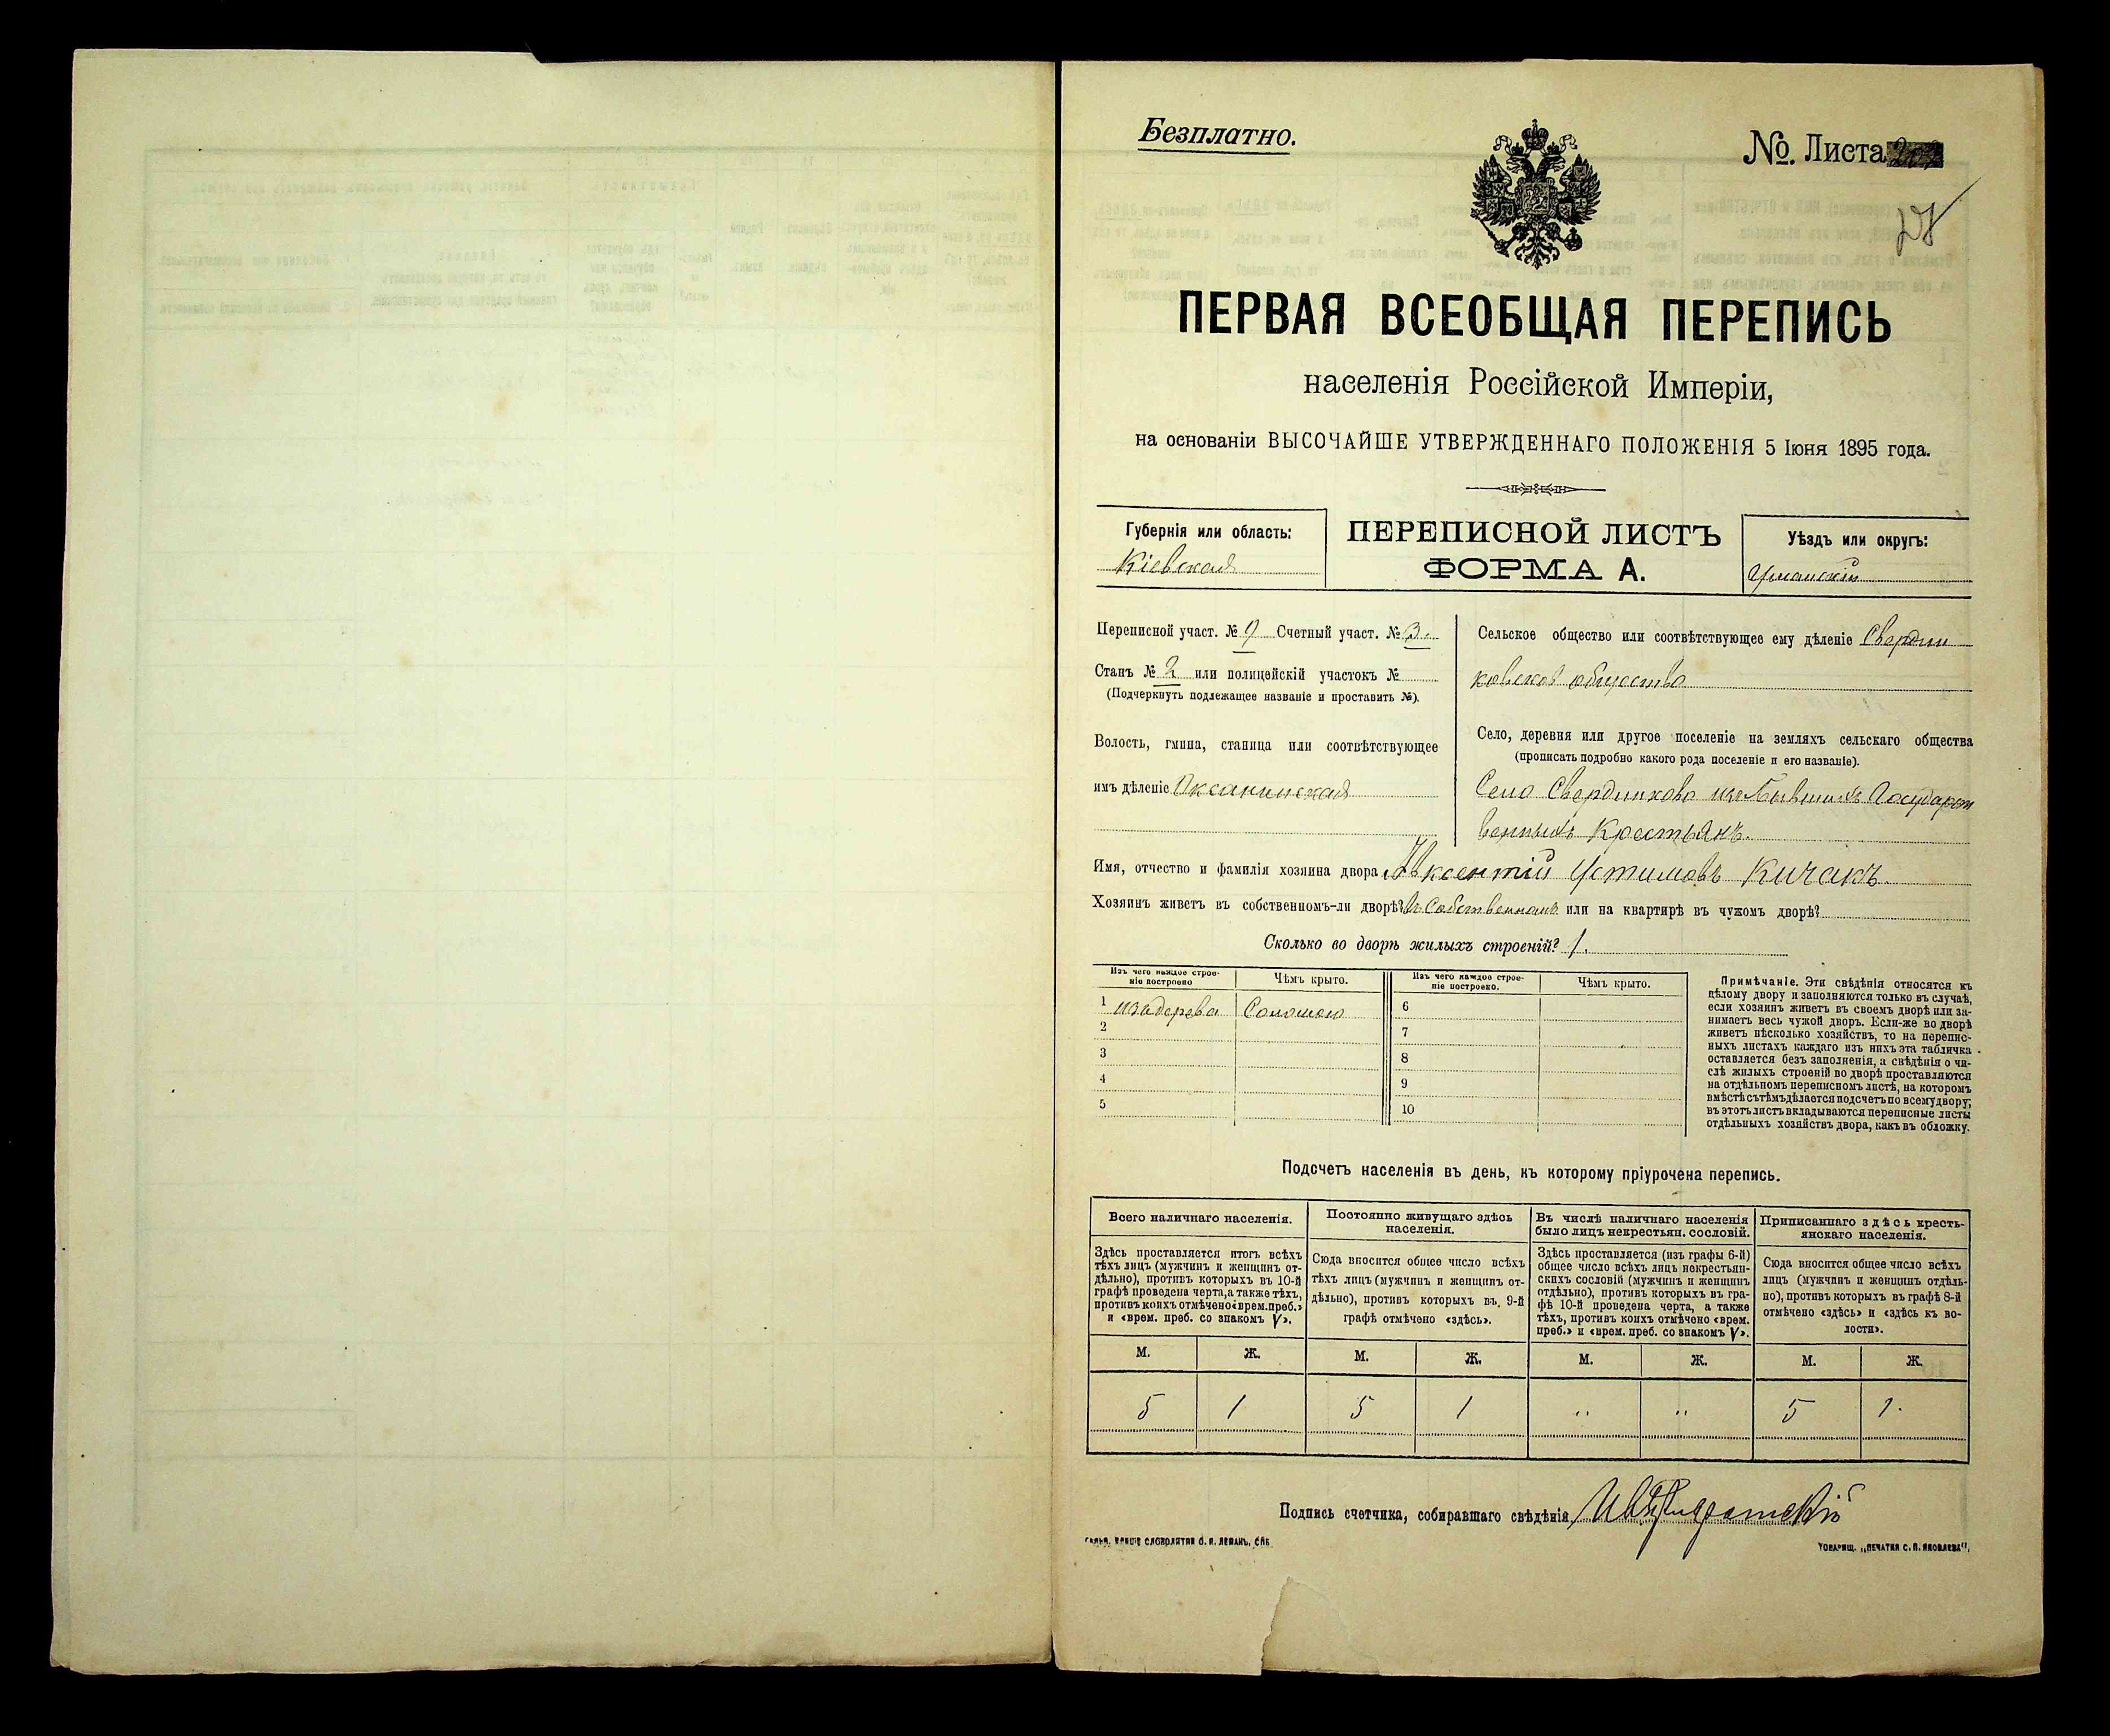 Безплатно.
№. Листа
28
ПЕРВАЯ ВСЕОБЩАЯ ПЕРЕПИСЬ
населенія Россійской Имперіи,
на основаніи ВЫСОЧАЙШЕ УТВЕРЖДЕННАГО ПОЛОЖЕНІЯ 5 Іюня 1895 года.
Губернія или область:
Кіевская
ПЕРЕПИСНОЙ ЛИСТЪ
ФОРМА А.
Уѣздъ или округъ:
Уманскій
Переписной участ. № 9 Счетный участ. № 3.
Станъ № 2 или полицейскій участокъ №
(Подчеркнуть подлежащее названіе и проставить №).
Волость, гмина, станица или соотвѣтствующее
имъ дѣленіе Оксанинская
Сельское общество или соотвѣтствующее ему дѣленіе Свердли
ковское общество
Село, деревня или другое поселеніе на земляхъ сельскаго общества
(прописать подробно какого рода поселеніе и его названіе).
Село Свердликово изъ бывшихъ Государст
венныхъ Крестьянъ.
Имя, отчество и фамилія хозяина двора Авксентій Устимовъ Кичакъ.
Хозяинъ живетъ въ собственномъ-ли дворѣ? Въ Собственномъ или на квартирѣ въ чужомъ дворѣ?
Сколько во дворѣ жилыхъ строеній? 1.
Изъ чего каждое строе-
ніе построено
Чѣмъ крыто.
Изъ чего каждое строе-
ніе построено.
Чѣмъ крыто.
1 изъ дерева Соломою
2
3
4
5
6
7
8
9
10
Примѣчаніе. Эти свѣдѣнія относятся къ
цѣлому двору и заполняются только въ случаѣ,
если хозяинъ живетъ въ своемъ дворѣ или за-
нимаетъ весь чужой дворъ. Если-же во дворѣ
живетъ нѣсколько хозяйствъ, то на перепис-
ныхъ листахъ каждаго изъ нихъ эта табличка
оставляется безъ заполненія, а свѣдѣнія о чи-
слѣ жилыхъ строеній во дворѣ проставляются
на отдѣльномъ переписномъ листѣ, на которомъ
вмѣстѣ съ тѣмъ дѣлается подсчетъ по всему двору;
въ этотъ листъ вкладываются переписные листы
отдѣльныхъ хозяйствъ двора, какъ въ обложку.
Подсчетъ населенія въ день, къ которому пріурочена перепись.
Всего наличнаго населенія.
Здѣсь проставляется итогъ всѣхъ
тѣхъ лицъ (мужчинъ и женщинъ от-
дѣльно), противъ которыхъ въ 10-й
графѣ проведена черта, а также тѣхъ,
противъ коихъ отмѣчено «врем. преб.»
и «врем. преб. со знакомъ V».
М. Ж.
5 1
Постоянно живущаго здѣсь
населенія.
Сюда вносится общее число всѣхъ
тѣхъ лицъ (мужчинъ и женщинъ от-
дѣльно), противъ которыхъ въ 9-й
графѣ отмѣчено «здѣсь».
М. Ж.
5 1
Въ числѣ наличнаго населенія
было лицъ некрестьян. сословій.
Здѣсь проставляется (изъ графы 6-й)
общее число всѣхъ лицъ некрестьян-
скихъ сословій (мужчинъ и женщинъ
отдѣльно), противъ которыхъ въ гра-
фѣ 10-й проведена черта, а также
тѣхъ, противъ коихъ отмѣчено «врем.
преб.» и «врем. преб. со знакомъ V».
М. Ж.
" "
Приписаннаго здѣсь кресть-
янскаго населенія.
Сюда вносится общее число всѣхъ
лицъ (мужчинъ и женщинъ отдѣль-
но), противъ которыхъ въ графѣ 8-й
отмѣчено «здѣсь» и «здѣсь къ во-
лости».
М. Ж.
5 1.
Подпись счетчика, собиравшаго свѣдѣнія
СЛОВОЛИТНИ О. И. ЛЕМАНЪ, СПБ
ТОВАРИЩ. „ПЕЧАТНЯ С. П. ЯКОВЛЕВА".